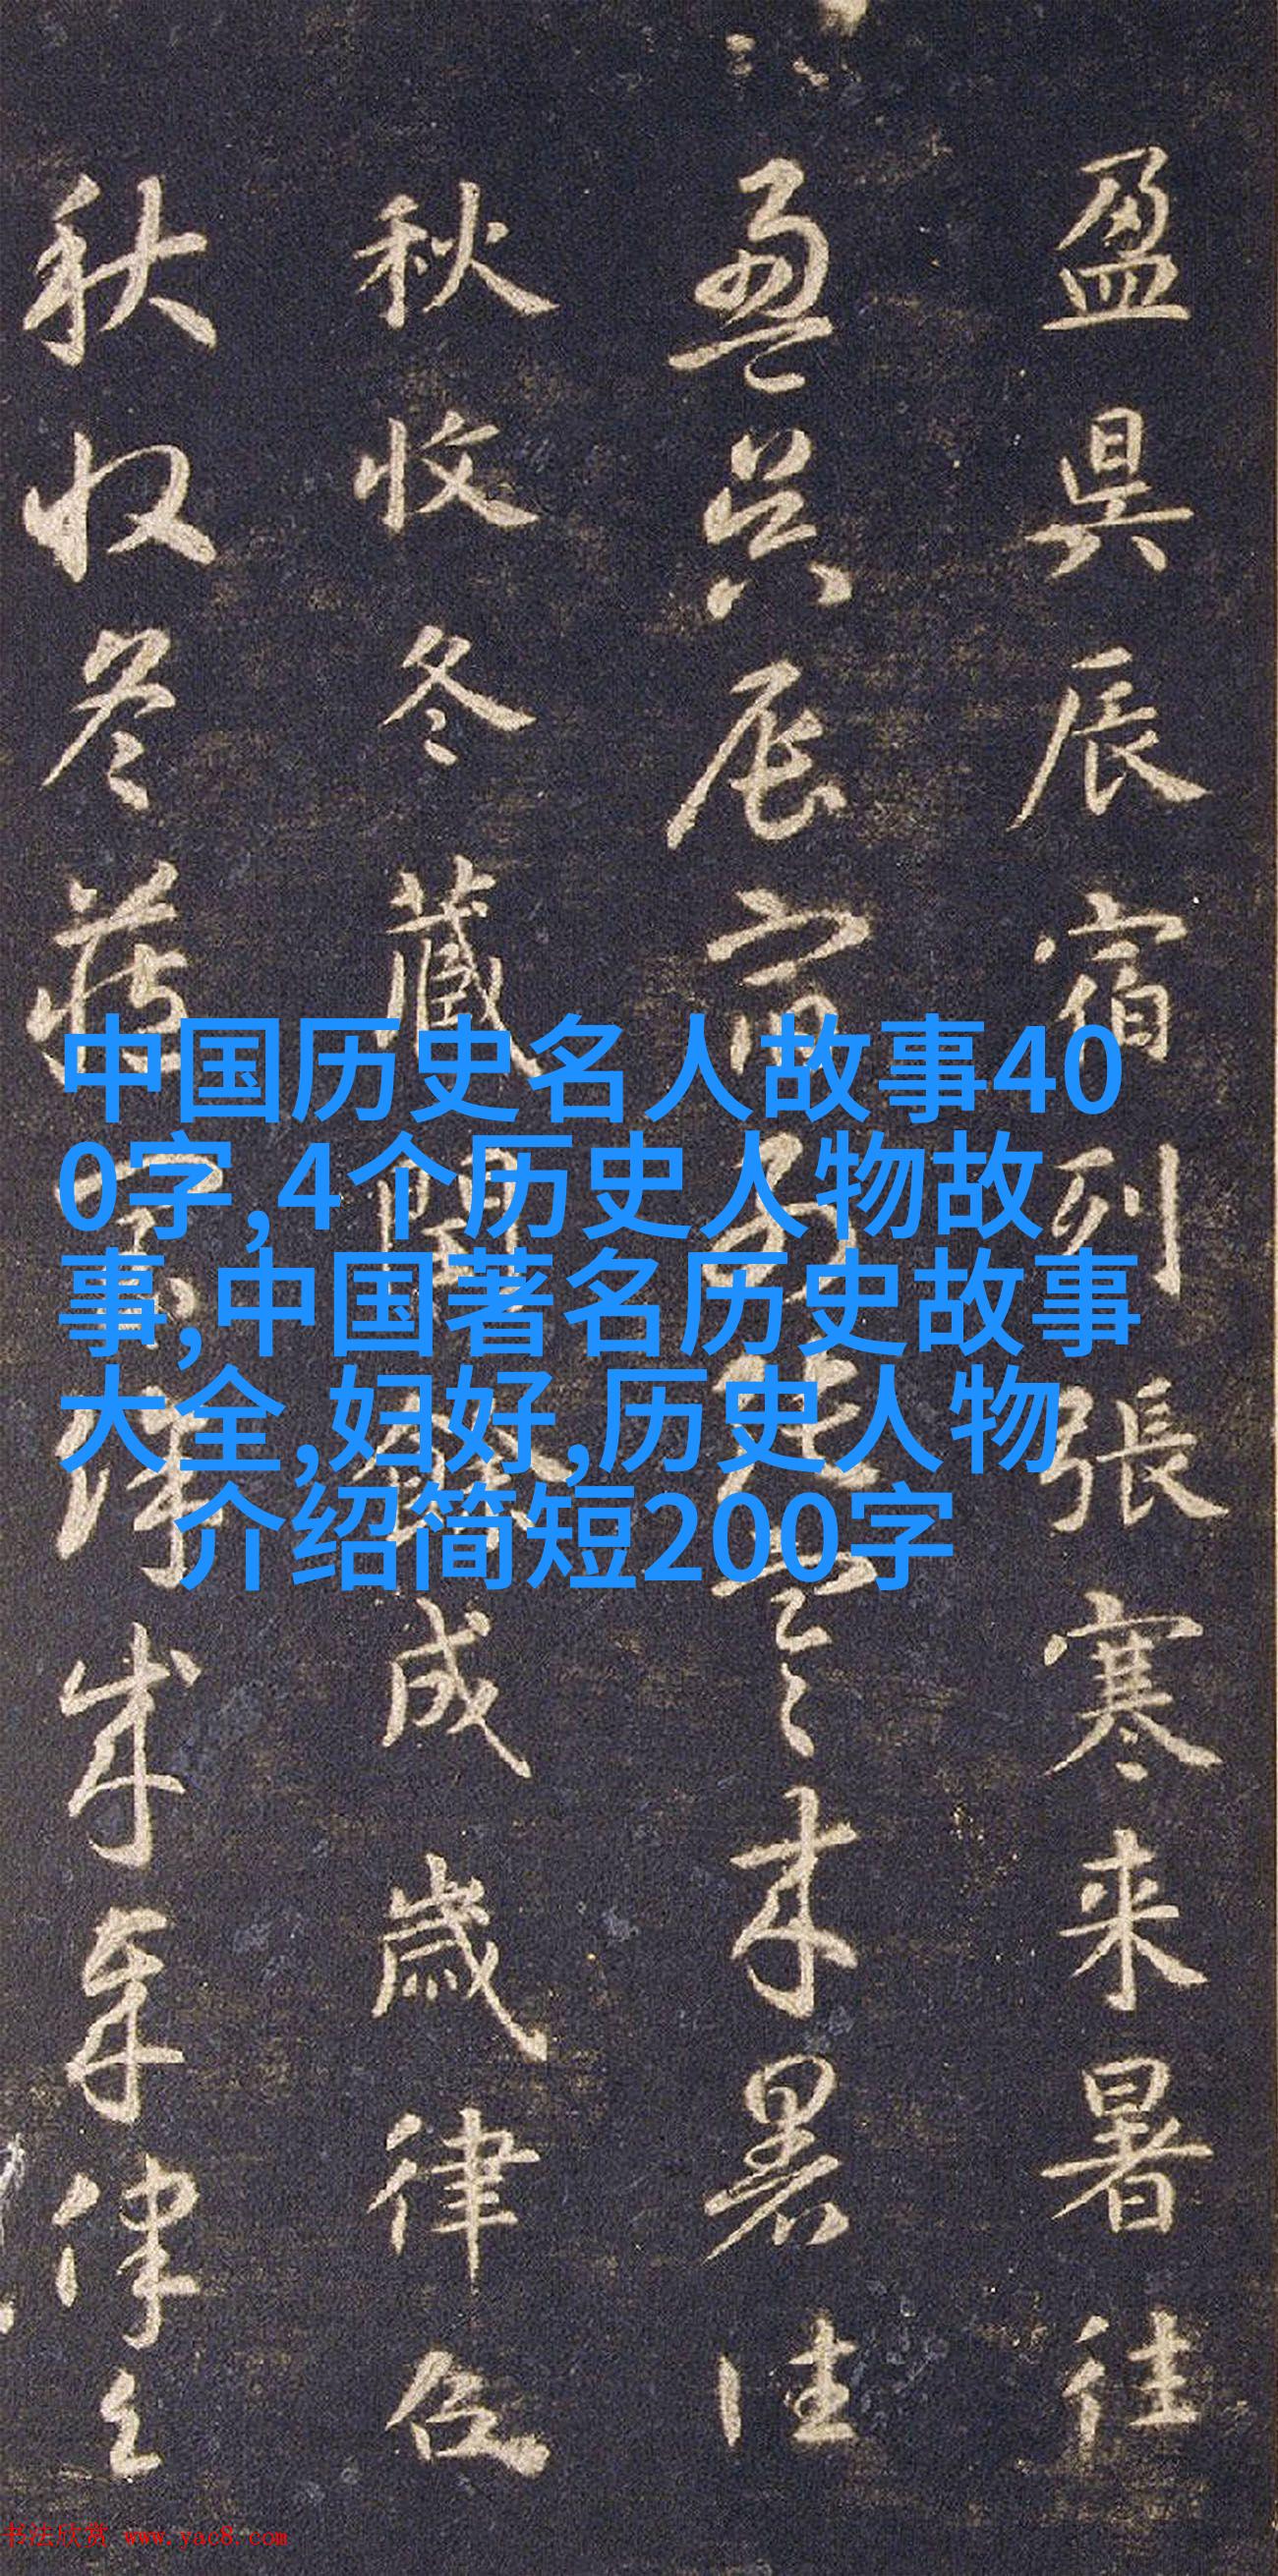 盈昃辰宿列張寒来暑往
盈昃辰宿列張寒来暑往
秋收冬藏閏餘成歲律召
秋收冬藏閏餘成歲律召
中国历史名人故事40
0字,4个历史人物故
事,中国著名历史故事
大全,妇好,历史人物
介绍简短200字
书法欣赏 www.yac8.com